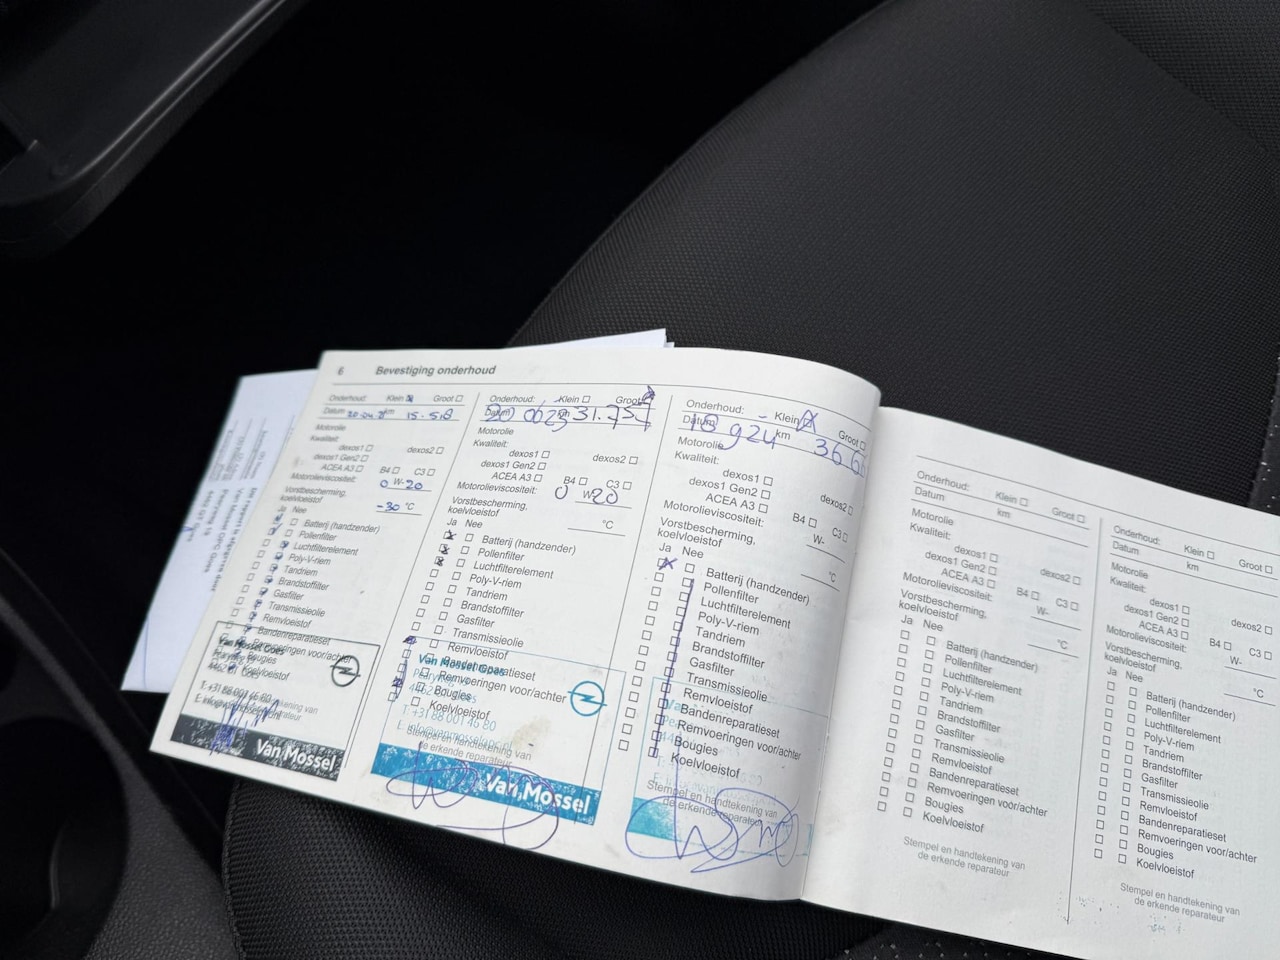 6 Bevestiging onderhoud
Onderhoud: Klein Groot
Datum km 15.518
Motorolie
Kwaliteit:
dexos1
dexos1 Gen2 dexos2
ACEA A3 B4 C3
Motorolieviscositeit: 0 W-20
Vorstbescherming,
koelvloeistof -30 °C
Ja Nee
Batterij (handzender)
Pollenfilter
Luchtfilterelement
Poly-V-riem
Tandriem
Brandstoffilter
Gasfilter
Transmissieolie
Remvloeistof
Bandenreparatieset
Remvoeringen voor/achter
Bougies
Koelvloeistof
Van Mossel Goes
Van Mossel
Onderhoud: Klein Groot
Datum 20 0623 km 31.757
Motorolie
Kwaliteit:
dexos1
dexos1 Gen2 dexos2
ACEA A3 B4 C3
Motorolieviscositeit: 0 W-20
Vorstbescherming,
koelvloeistof °C
Ja Nee
Batterij (handzender)
Pollenfilter
Luchtfilterelement
Poly-V-riem
Tandriem
Brandstoffilter
Gasfilter
Transmissieolie
Remvloeistof
Bandenreparatieset
Remvoeringen voor/achter
Bougies
Koelvloeistof
Van Mossel Goes
Stempel en handtekening van
de erkende reparateur
Van Mossel
Onderhoud: Klein Groot
Datum 18 924 km 36 6
Motorolie
Kwaliteit:
dexos1
dexos1 Gen2 dexos2
ACEA A3 B4 C3
Motorolieviscositeit: W-
Vorstbescherming,
koelvloeistof °C
Ja Nee
Batterij (handzender)
Pollenfilter
Luchtfilterelement
Poly-V-riem
Tandriem
Brandstoffilter
Gasfilter
Transmissieolie
Remvloeistof
Bandenreparatieset
Remvoeringen voor/achter
Bougies
Koelvloeistof
Stempel en handtekening van
de erkende reparateur
Onderhoud: Klein Groot
Datum km
Motorolie
Kwaliteit:
dexos1
dexos1 Gen2 dexos2
ACEA A3 B4 C3
Motorolieviscositeit: W-
Vorstbescherming,
koelvloeistof °C
Ja Nee
Batterij (handzender)
Pollenfilter
Luchtfilterelement
Poly-V-riem
Tandriem
Brandstoffilter
Gasfilter
Transmissieolie
Remvloeistof
Bandenreparatieset
Remvoeringen voor/achter
Bougies
Koelvloeistof
Stempel en handtekening van
de erkende reparateur
Onderhoud: Klein Groot
Datum km
Motorolie
Kwaliteit:
dexos1
dexos1 Gen2 dexos2
ACEA A3 B4 C3
Motorolieviscositeit: W-
Vorstbescherming,
koelvloeistof °C
Ja Nee
Batterij (handzender)
Pollenfilter
Luchtfilterelement
Poly-V-riem
Tandriem
Brandstoffilter
Gasfilter
Transmissieolie
Remvloeistof
Bandenreparatieset
Remvoeringen voor/achter
Bougies
Koelvloeistof
Stempel en handtekening van
de erkende reparateur